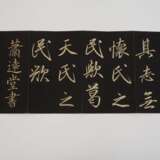 其志無
懷氏之
民歟葛
天氏之
民歟
蕭遠堂書